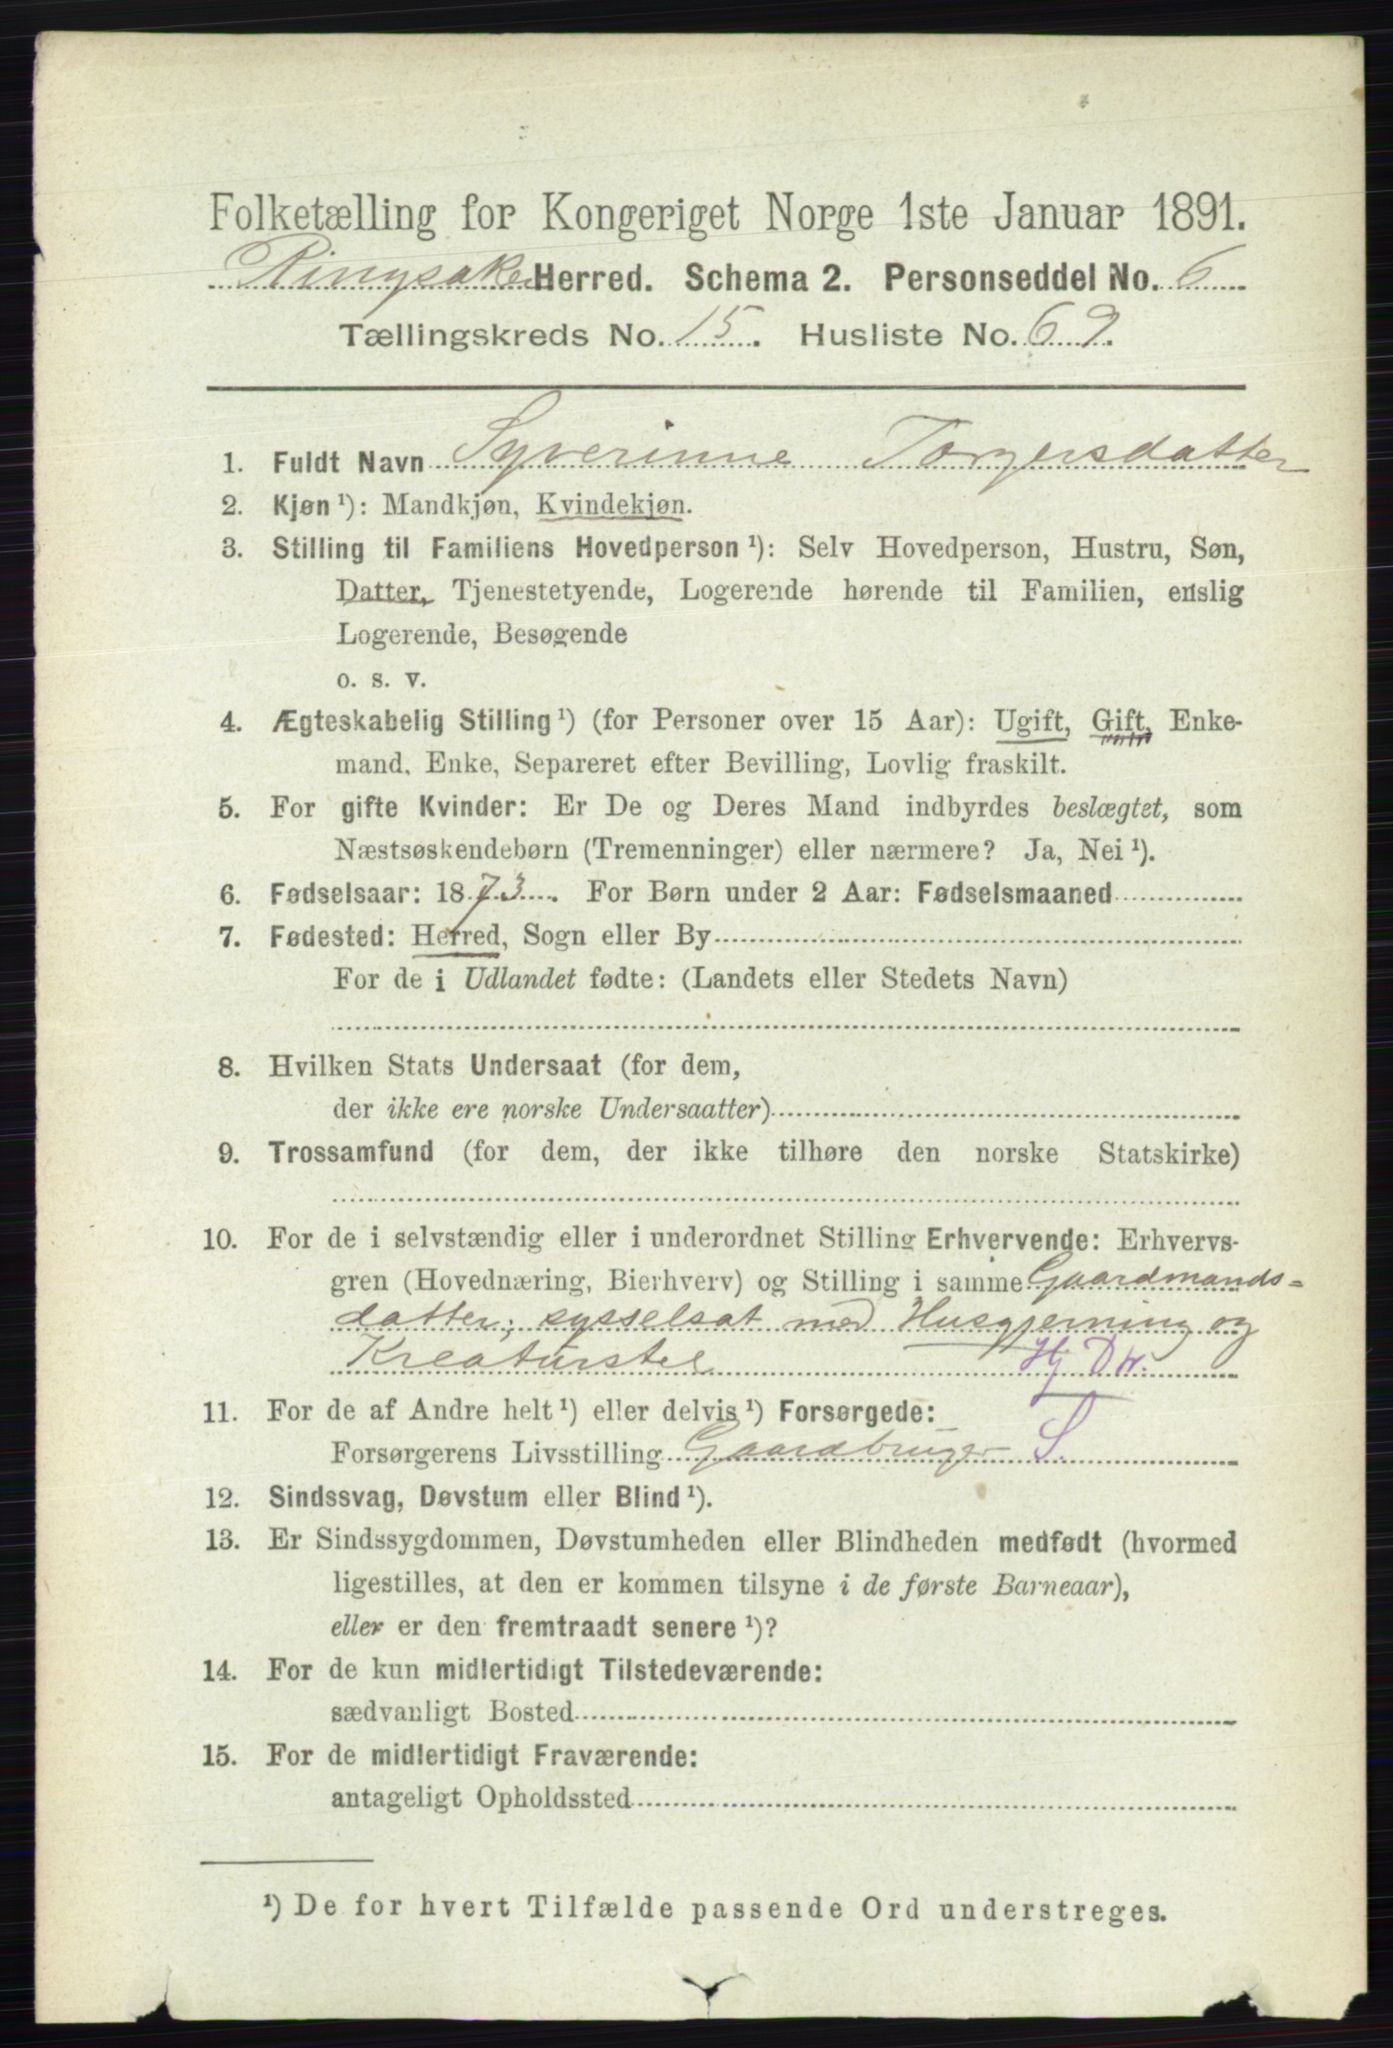 Folketælling for Kongeriget Norge 1ste Januar 1891.
Ringsaker Herred. Schema 2. Personseddel No. 6
Tællingskreds No. 15. Husliste No. 69.
1. Fuldt Navn Syverinne Torgersdatter
2. Kjøn ¹): Mandkjøn, Kvindekjøn.
3. Stilling til Familiens Hovedperson ¹): Selv Hovedperson, Hustru, Søn,
Datter, Tjenestetyende, Logerende hørende til Familien, enslig
Logerende, Besøgende
o. s. v.
4. Ægteskabelig Stilling ¹) (for Personer over 15 Aar): Ugift, Gift, Enke-
mand, Enke, Separeret efter Bevilling, Lovlig fraskilt.
5. For gifte Kvinder: Er De og Deres Mand indbyrdes beslægtet, som
Næstsøskendebørn (Tremenninger) eller nærmere? Ja, Nei ¹).
6. Fødselsaar: 1873. For Børn under 2 Aar: Fødselsmaaned
7. Fødested: Herred, Sogn eller By
For de i Udlandet fødte: (Landets eller Stedets Navn)
8. Hvilken Stats Undersaat (for dem,
der ikke ere norske Undersaatter)
9. Trossamfund (for dem, der ikke tilhøre den norske Statskirke)
10. For de i selvstændig eller i underordnet Stilling Erhvervende: Erhvervs-
gren (Hovednæring, Bierhverv) og Stilling i samme Gaardmands=
datter; sysselsat med Husgjerning og
Kreaturstel Hj Dtr.
11. For de af Andre helt ¹) eller delvis ¹) Forsørgede:
Forsørgerens Livsstilling Gaardbruger S.
12. Sindssvag, Døvstum eller Blind ¹).
13. Er Sindssygdommen, Døvstumheden eller Blindheden medfødt (hvormed
ligestilles, at den er kommen tilsyne i de første Barneaar),
eller er den fremtraadt senere ¹)?
14. For de kun midlertidigt Tilstedeværende:
sædvanligt Bosted
15. For de midlertidigt Fraværende:
antageligt Opholdssted
¹) De for hvert Tilfælde passende Ord understreges.